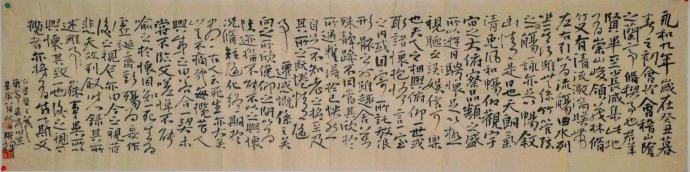 永和九年歲在癸丑暮
春之初會于會稽山陰
之蘭亭脩禊事也群
賢畢至少長咸集此地
有崇山峻領茂林脩
竹又有清流激湍暎帶
左右引以為流觴曲水列
坐其次雖無絲竹管弦
之盛一觴一詠亦足以暢敘
幽情是日也天朗氣
清惠風和暢仰觀宇
宙之大俯察品類之盛
所以遊目騁懷足以極
視聽之娛信可樂
也夫人之相與俯仰一世或
取諸懷抱悟言一室
之內或因寄所託放浪
形骸之外雖趣舍萬
殊靜躁不同當其欣於
所遇暫得於己快然
自足不知老之將至及其
所之既惓情隨
事遷感慨係之矣
向之所欣俛仰之間以為
陳迹猶不能不以之興懷
況脩短隨化終期於
盡古人云死生亦大矣
豈不痛哉每攬昔人
興感之由若合一契未
嘗不臨文嗟悼不能
喻之於懷固知一死生為
虛誕齊彭殤為妄
作後之視今亦由今之視昔
悲夫故列敘時人錄其所
述雖世殊事異所以
興懷其致一也後之
攬者亦將有感於斯文